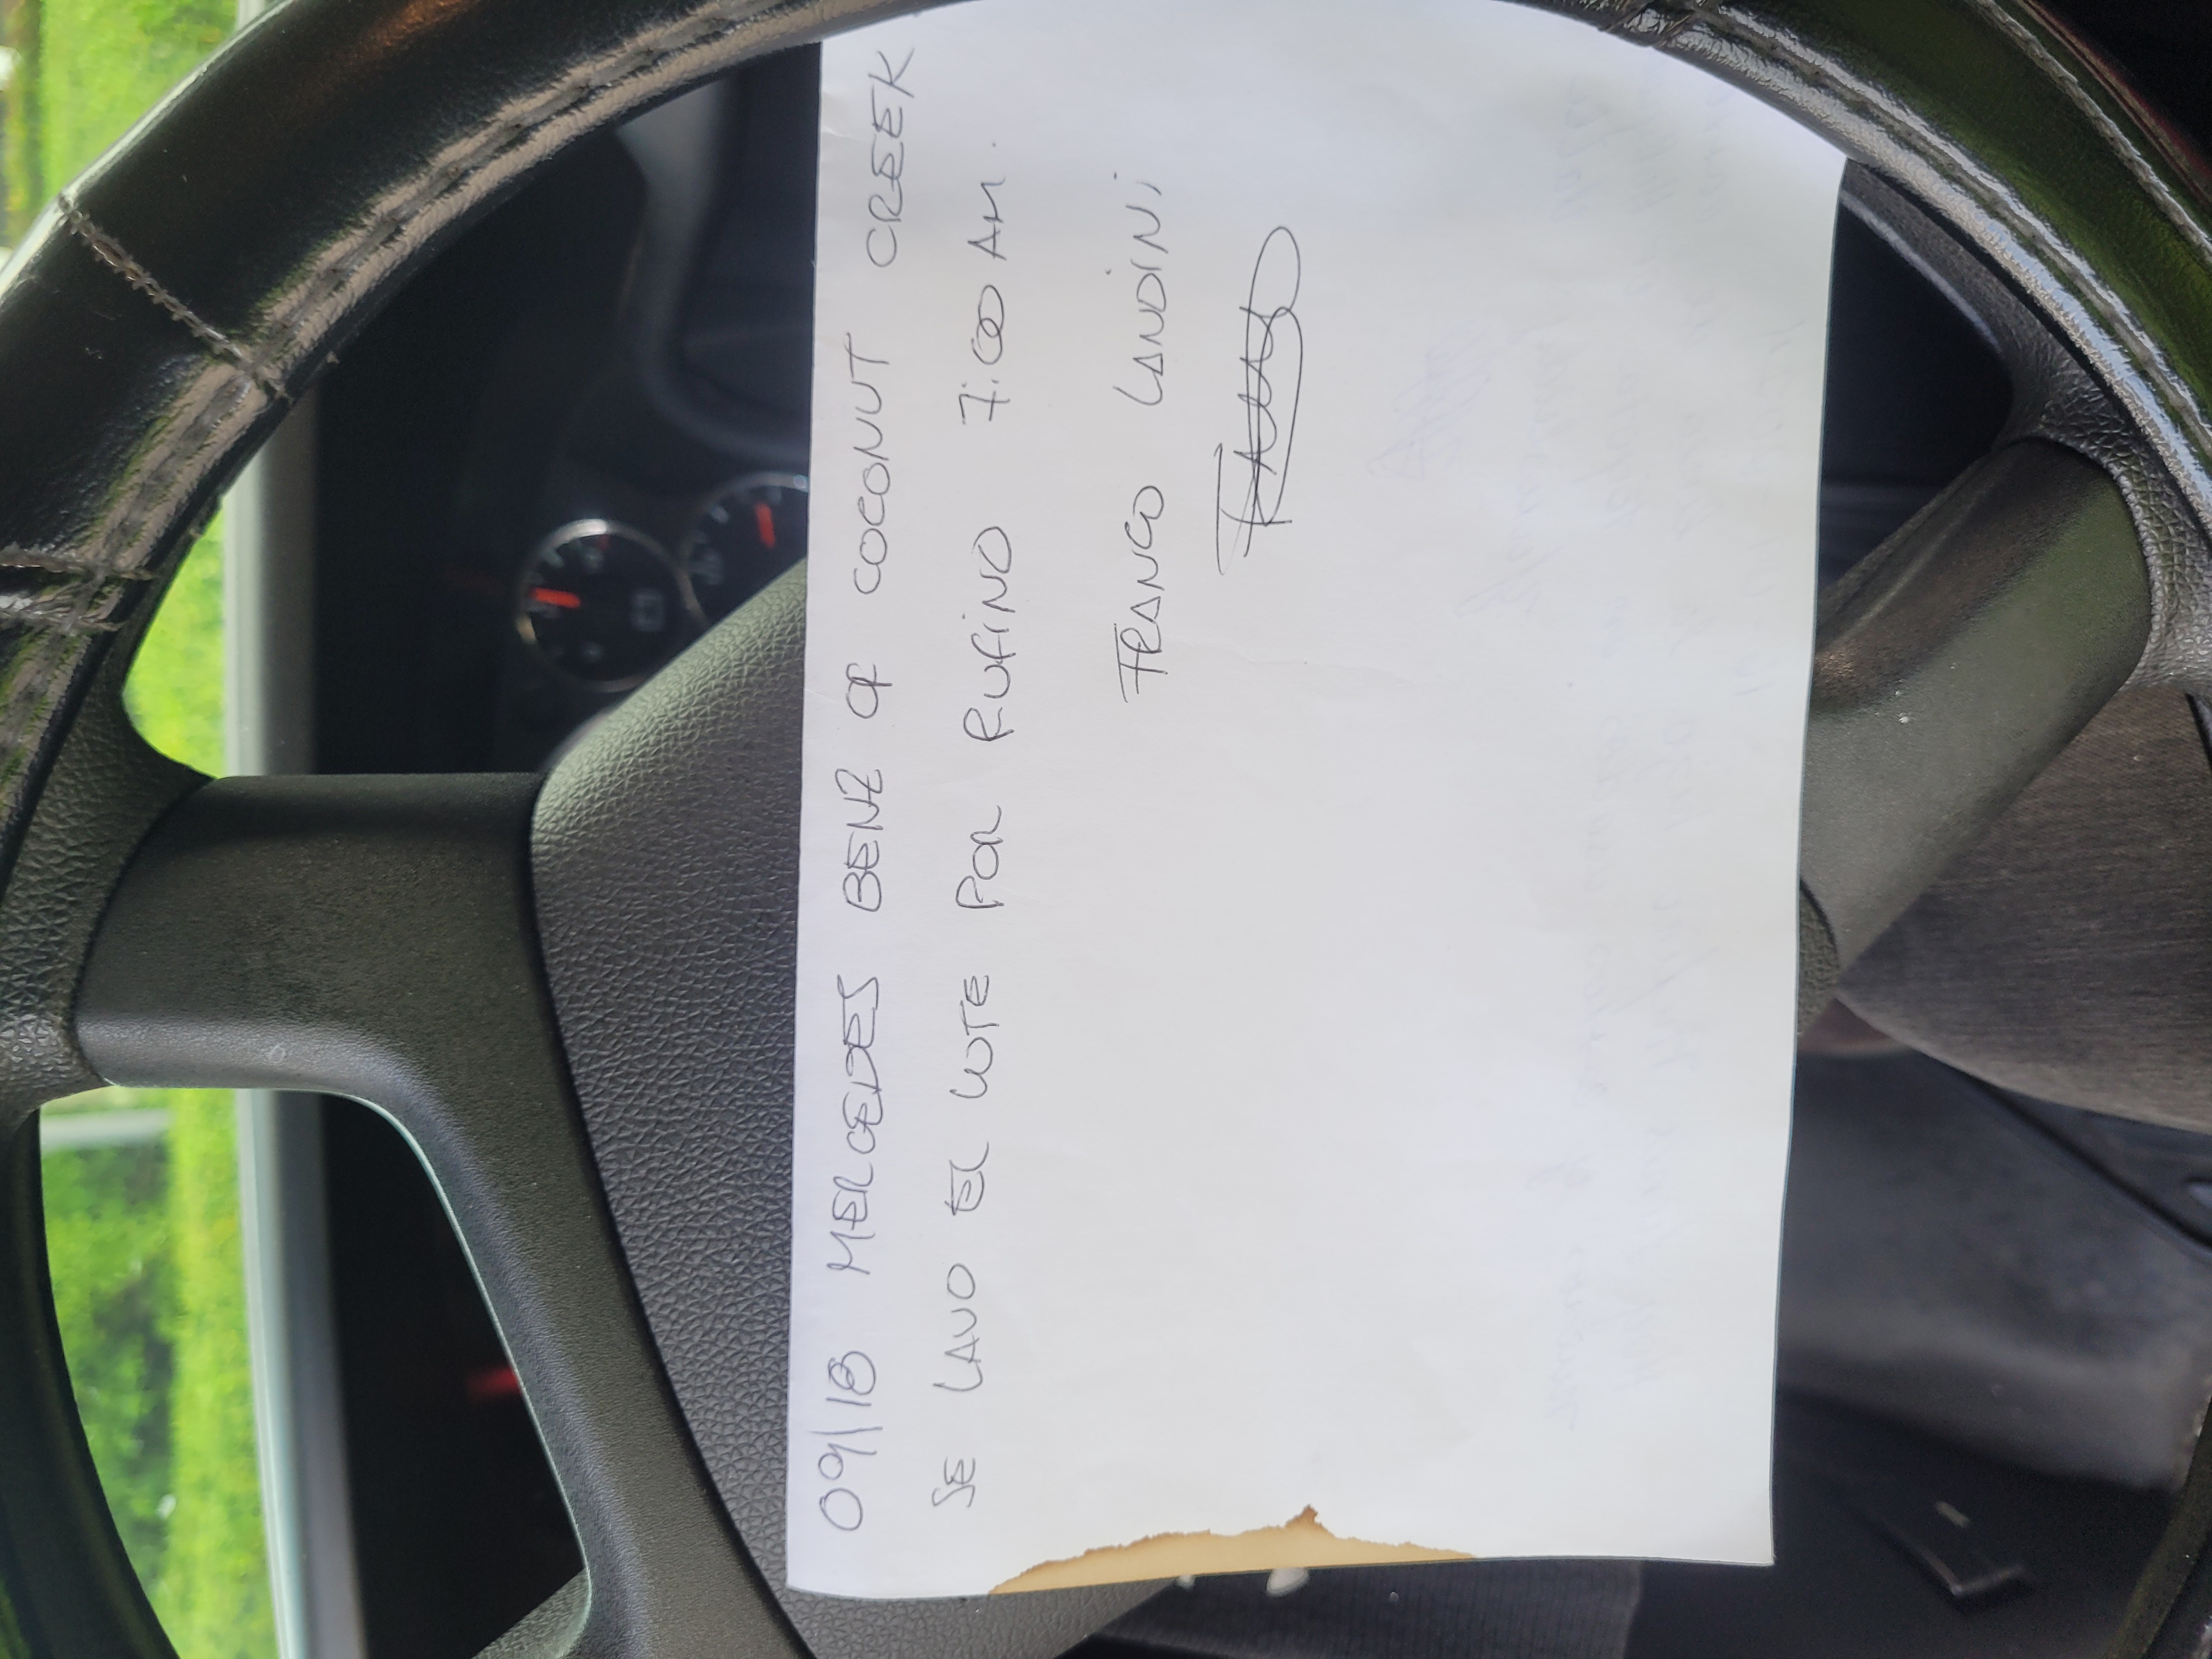 09/18 MERCEDES BENZ OF COCONUT CREEK
SE LAVO EL LOTE POR RUFINO 7:00 AM.
FRANCO LANDINI